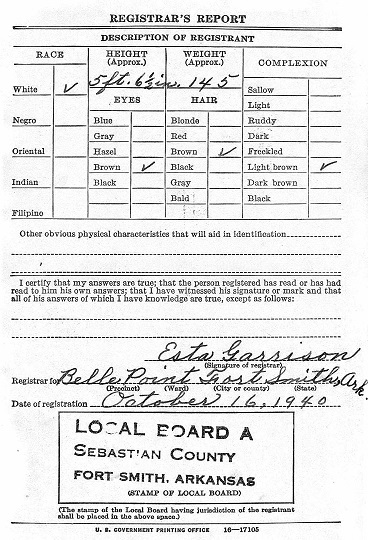 REGISTRAR'S REPORT
DESCRIPTION OF REGISTRANT
RACE
HEIGHT (Approx.)
WEIGHT (Approx.)
COMPLEXION
5 ft. 6½ in. 145
White ✓
EYES
HAIR
Sallow
Light
Negro
Blue
Blonde
Ruddy
Gray
Red
Dark
Oriental
Hazel
Brown ✓
Freckled
Brown ✓
Black
Light brown ✓
Indian
Black
Gray
Dark brown
Bald
Black
Filipino
Other obvious physical characteristics that will aid in identification
I certify that my answers are true; that the person registered has read or has had
read to him his own answers; that I have witnessed his signature or mark and that
all of his answers of which I have knowledge are true, except as follows:
Esta Garrison
(Signature of registrar)
Registrar for Belle Point Fort Smith, Ark.
(Precinct) (Ward) (City or county) (State)
Date of registration October 16, 1940
LOCAL BOARD A
SEBASTIAN COUNTY
FORT SMITH, ARKANSAS
(STAMP OF LOCAL BOARD)
(The stamp of the Local Board having jurisdiction of the registrant
shall be placed in the above space.)
U. S. GOVERNMENT PRINTING OFFICE 16—17105